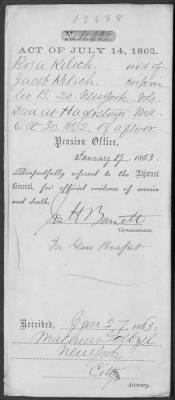 13538
ACT OF JULY 14, 1862.
Rosa Kelsch, wid of
Jacob Kelsch, corp in
Co B. 20. New York Vols
Died at Hagerstown, Md.
Oct 30. 1862. of a fever.
Pension Office,
January 27, 1863.
Respectfully referred to the Adjutant
General, for official evidence of service
and death.
Jos H Barrett
Commissioner.
In Gen Hospit
Received, Jan 27, 1863.
New York
City
Attorney.